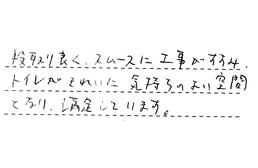 段取り良く、スムースに工事がすすみ、
トイレがきれいに気持ちのよい空間
となり、満足しています。